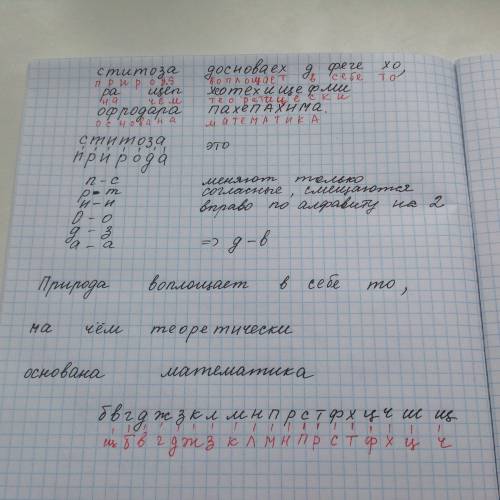 ститоза досноваех д феге хо,
природа воплощает в себе то
ра щеп хотехищефми
на чем теоретически
офродара пахепахима.
основана математика
ститоза это
природа
п-с меняют только
р-т согласные, смещаются
и-и вправо по алфавиту на 2
о-о
д-з
а-а => д-в
Природа воплощает в себе то,
на чём теоретически
основана математика
бвгджзклмнпрстфхцчшщ
щбвгджзклмнпрстфхцч